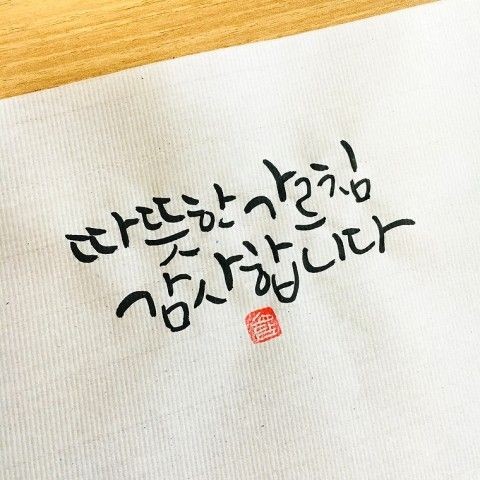 따뜻한 가르침
감사합니다